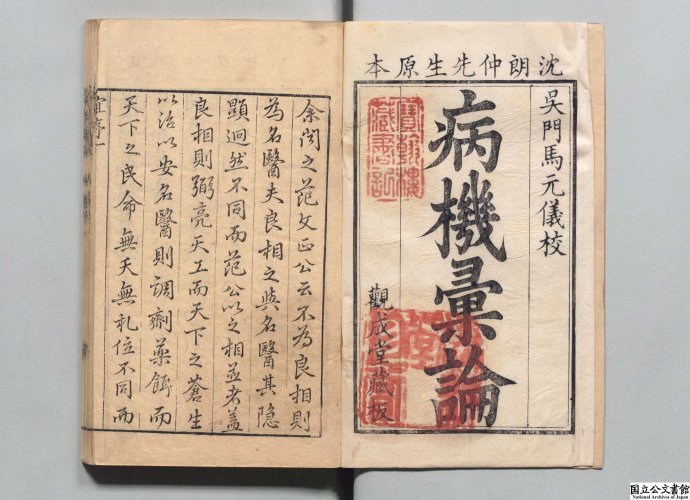 沈朗仲先生原本
吳門馬元儀校
病機彙論
觀成堂藏板
寶翰樓
藏書記
余閱之范文正公云不為良相則
為名醫夫良相之與名醫其隐
顯迥然不同而范公以之相並者盖
良相則弼亮天工而天下之蒼生
以治以安名醫則調劑藥餌而
天下之民命無夭無札位不同而
國立公文書館
National Archives of Japan